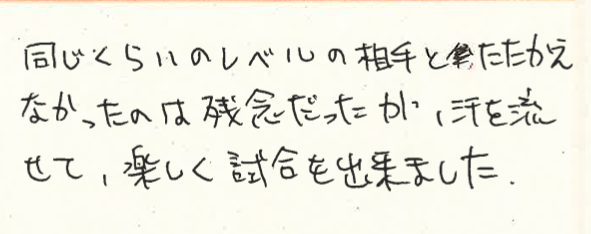 同じくらいのレベルの相手とたたかえ
なかったのは残念だったが、汗を流
せて、楽しく試合を出来ました.